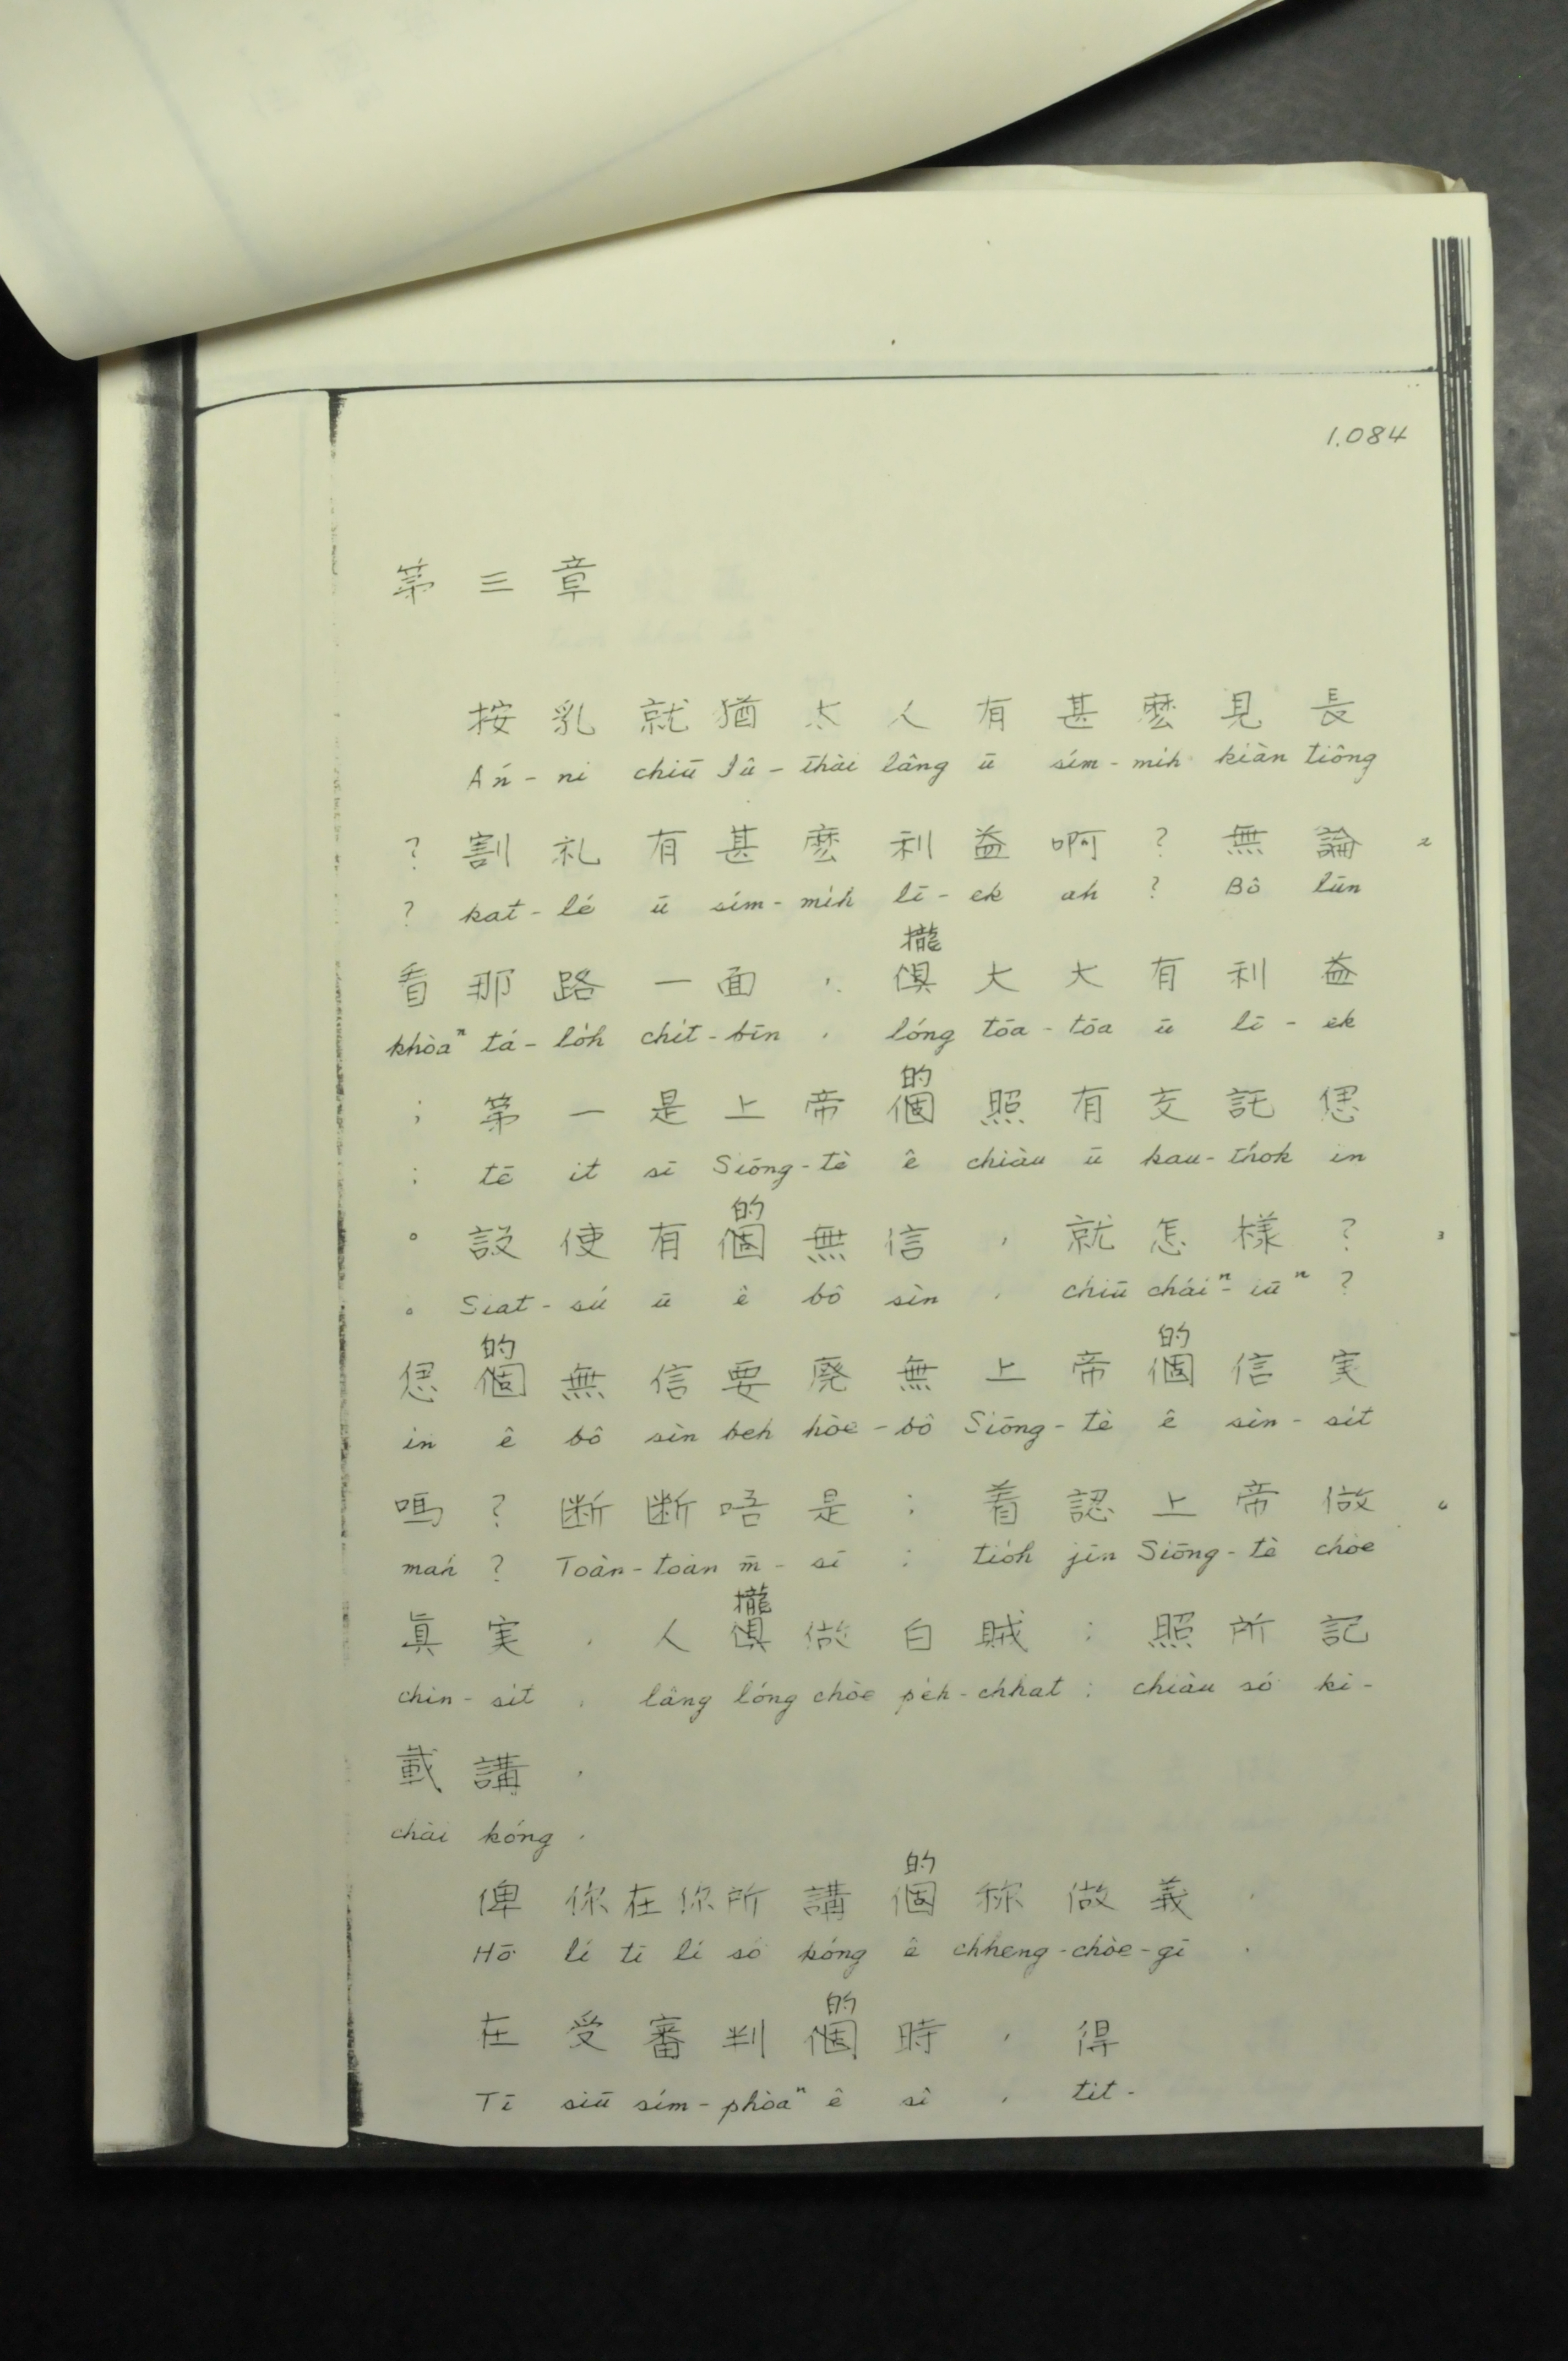 1.084
第三章
按乳就猶太人有甚麽見長
Án-ni chiū Iû-thài lâng ū sím-mih kiàn tiông
?割礼有甚麽利益啊?無論 2
? kat-lé ū sím-mih lī-ek ah ? Bô lūn
攏
看那路一面,俱大大有利益
khòaⁿ tá-lo̍h chi̍t-bīn , lóng tōa-tōa ū lī-ek
的
;第一是上帝個照有交託偲
; tē it sī Siōng-tè ê chiàu ū kau-thok in
的
。設使有個無信,就怎樣? 3
。 Siat-sú ū ê bô sìn , chiū cháiⁿ-iūⁿ ?
的 的
偲個無信要廃無上帝個信実
in ê bô sìn beh hòe-bô Siōng-tè ê sìn-si̍t
嗎?断断唔是;着認上帝做
mah ? Toàn-toàn m̄-sī ; tio̍h jīn Siōng-tè chòe
攏
眞実,人俱做白賊;照所記
chin-si̍t , lâng lóng chòe pe̍h-chhat ; chiàu só kì-
載講,
chài kóng ,
的
俾你在你所講個称做義,
Hō͘ lí tī lí só kóng ê chheng-chòe-gī ,
的
在受審判個時,得
Tī siū sím-phòaⁿ ê sî , tit-